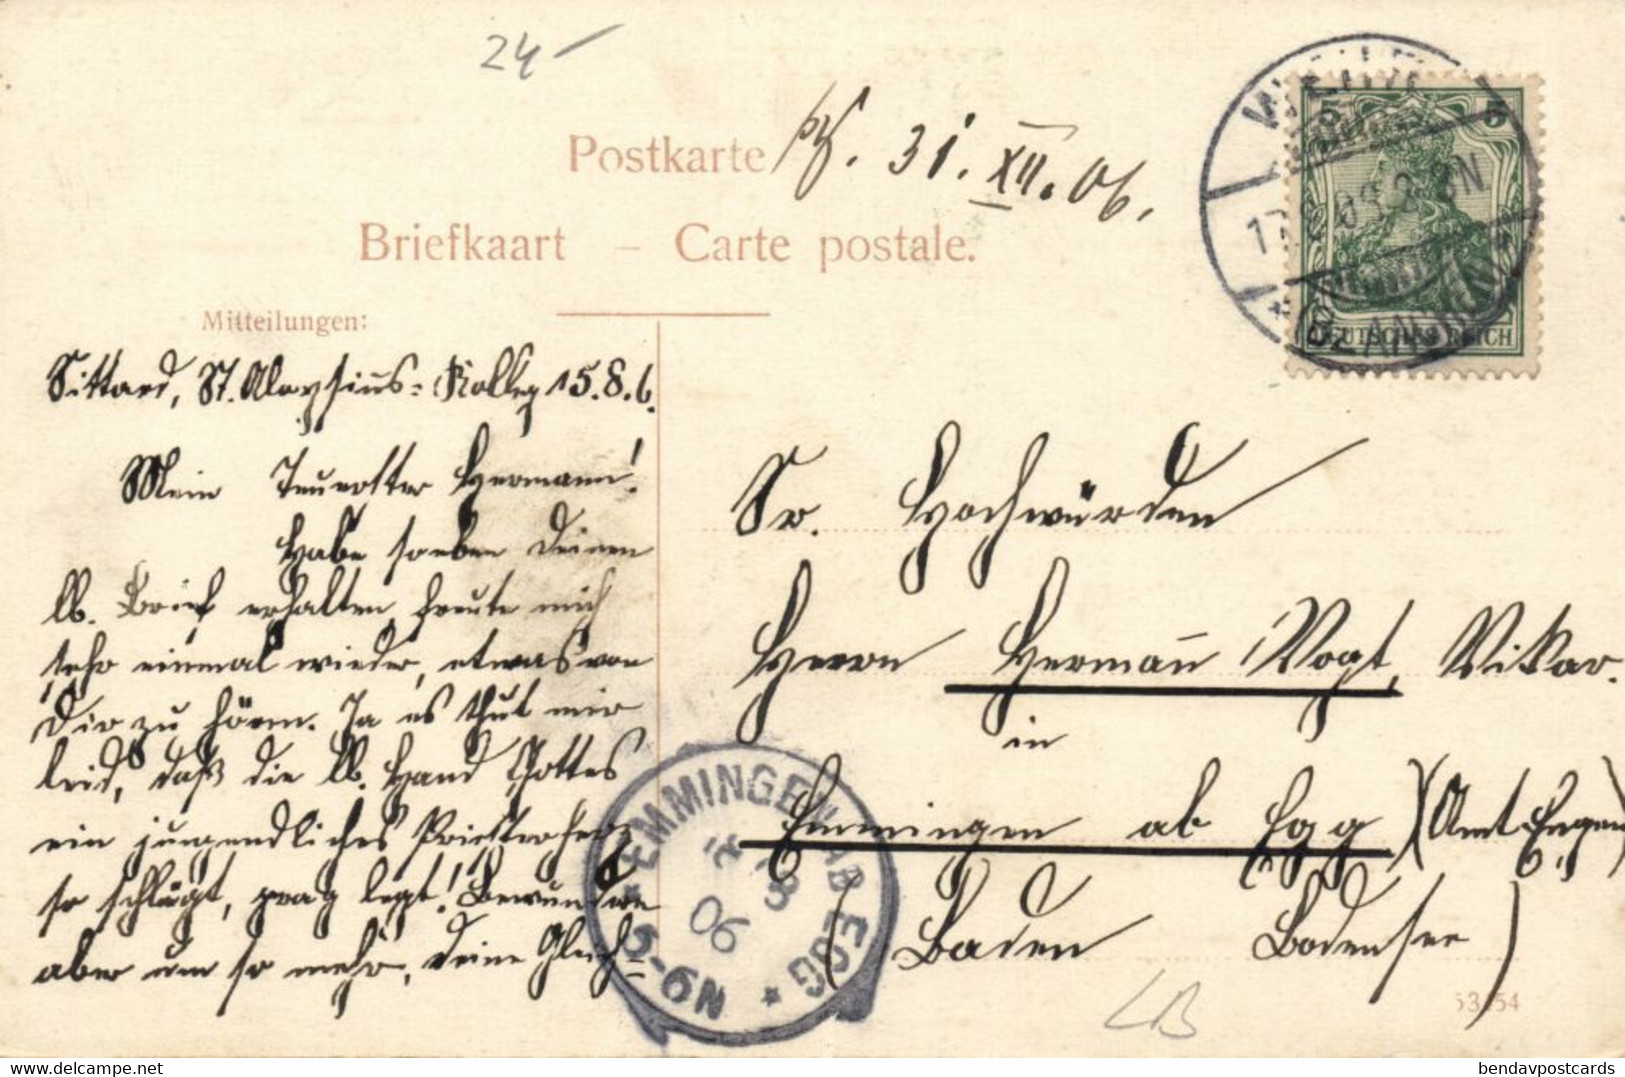 24
Postkarte
31. XII. 06.
Briefkaart – Carte postale.
5 5
DEUTSCHES REICH
Mitteilungen:
Sittard, St. Aloysius-Kolleg 15.8.6.
Mein Teuerster Hermann!
Habe soeben Deinen
lb. Brief erhalten, freute mich
sehr einmal wieder, etwas von
Dir zu hören. Ja es thut mir
leid, daß die lb. Hand Gottes
ein jugendliches Priesterherz
so schlägt, legt! Bewundere
aber um so mehr, Deine Gleich-
Sr. Hochwürden
Herrn Hermann Vogt, Vikar.
in
Emmingen ab Egg (Amt Engen)
(Baden Bodensee)
EMMINGEN AB EGG
06
5-6N
LB
bendavpostcards